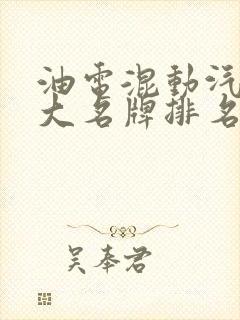 油电混动汽
大名牌排名
吴奉君